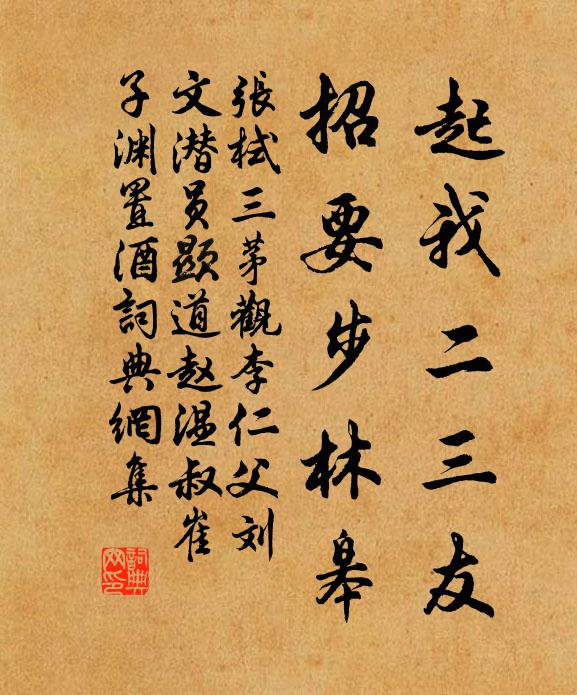 起我二三友
招要步林皋
張栻三茅觀李仁父刘
文潜员顯道赵温叔崔
子渊置酒詞典網集
詞典网印